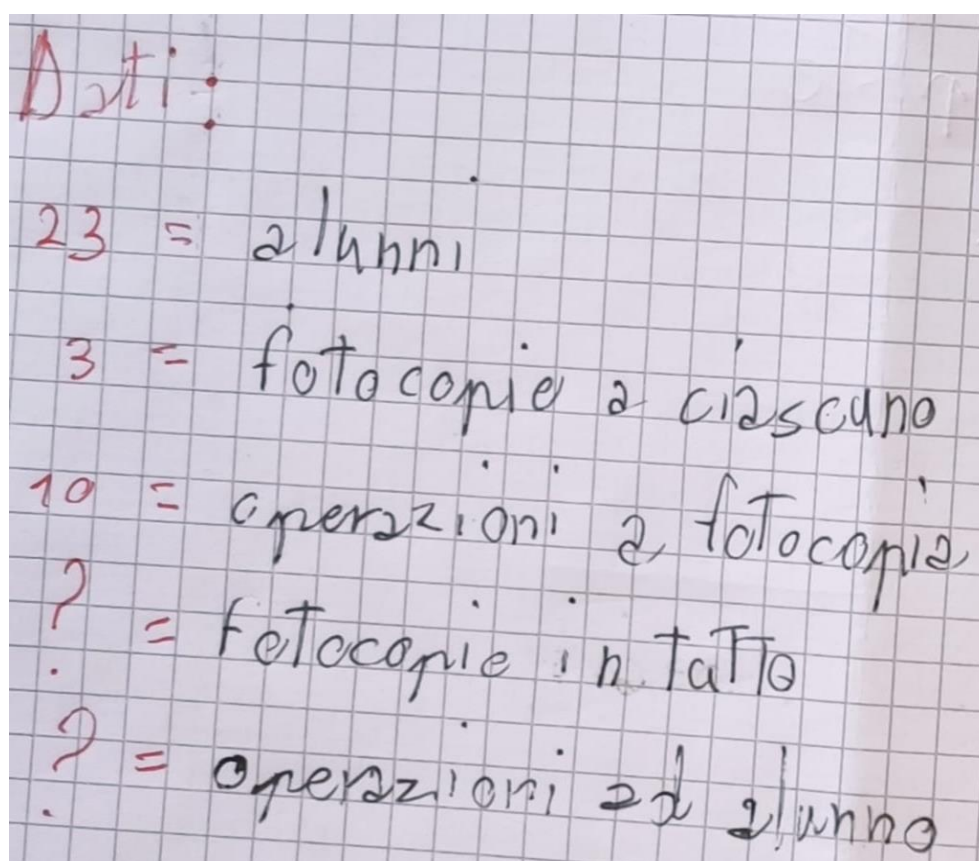 Dati:
23 = alunni
3 = fotocopie a ciascuno
10 = operazioni a fotocopia
? = fotocopie in tutto
? = operazioni ad alunno